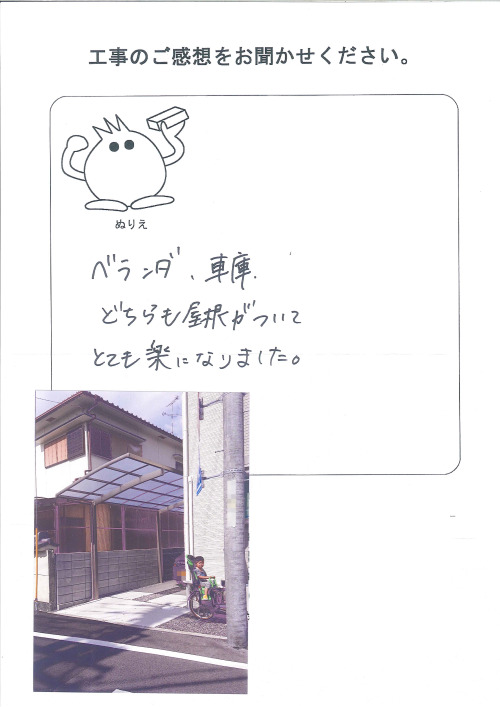 工事のご感想をお聞かせください。
ぬりえ
ベランダ、車庫.
どちらも屋根がついて
とても楽になりました。